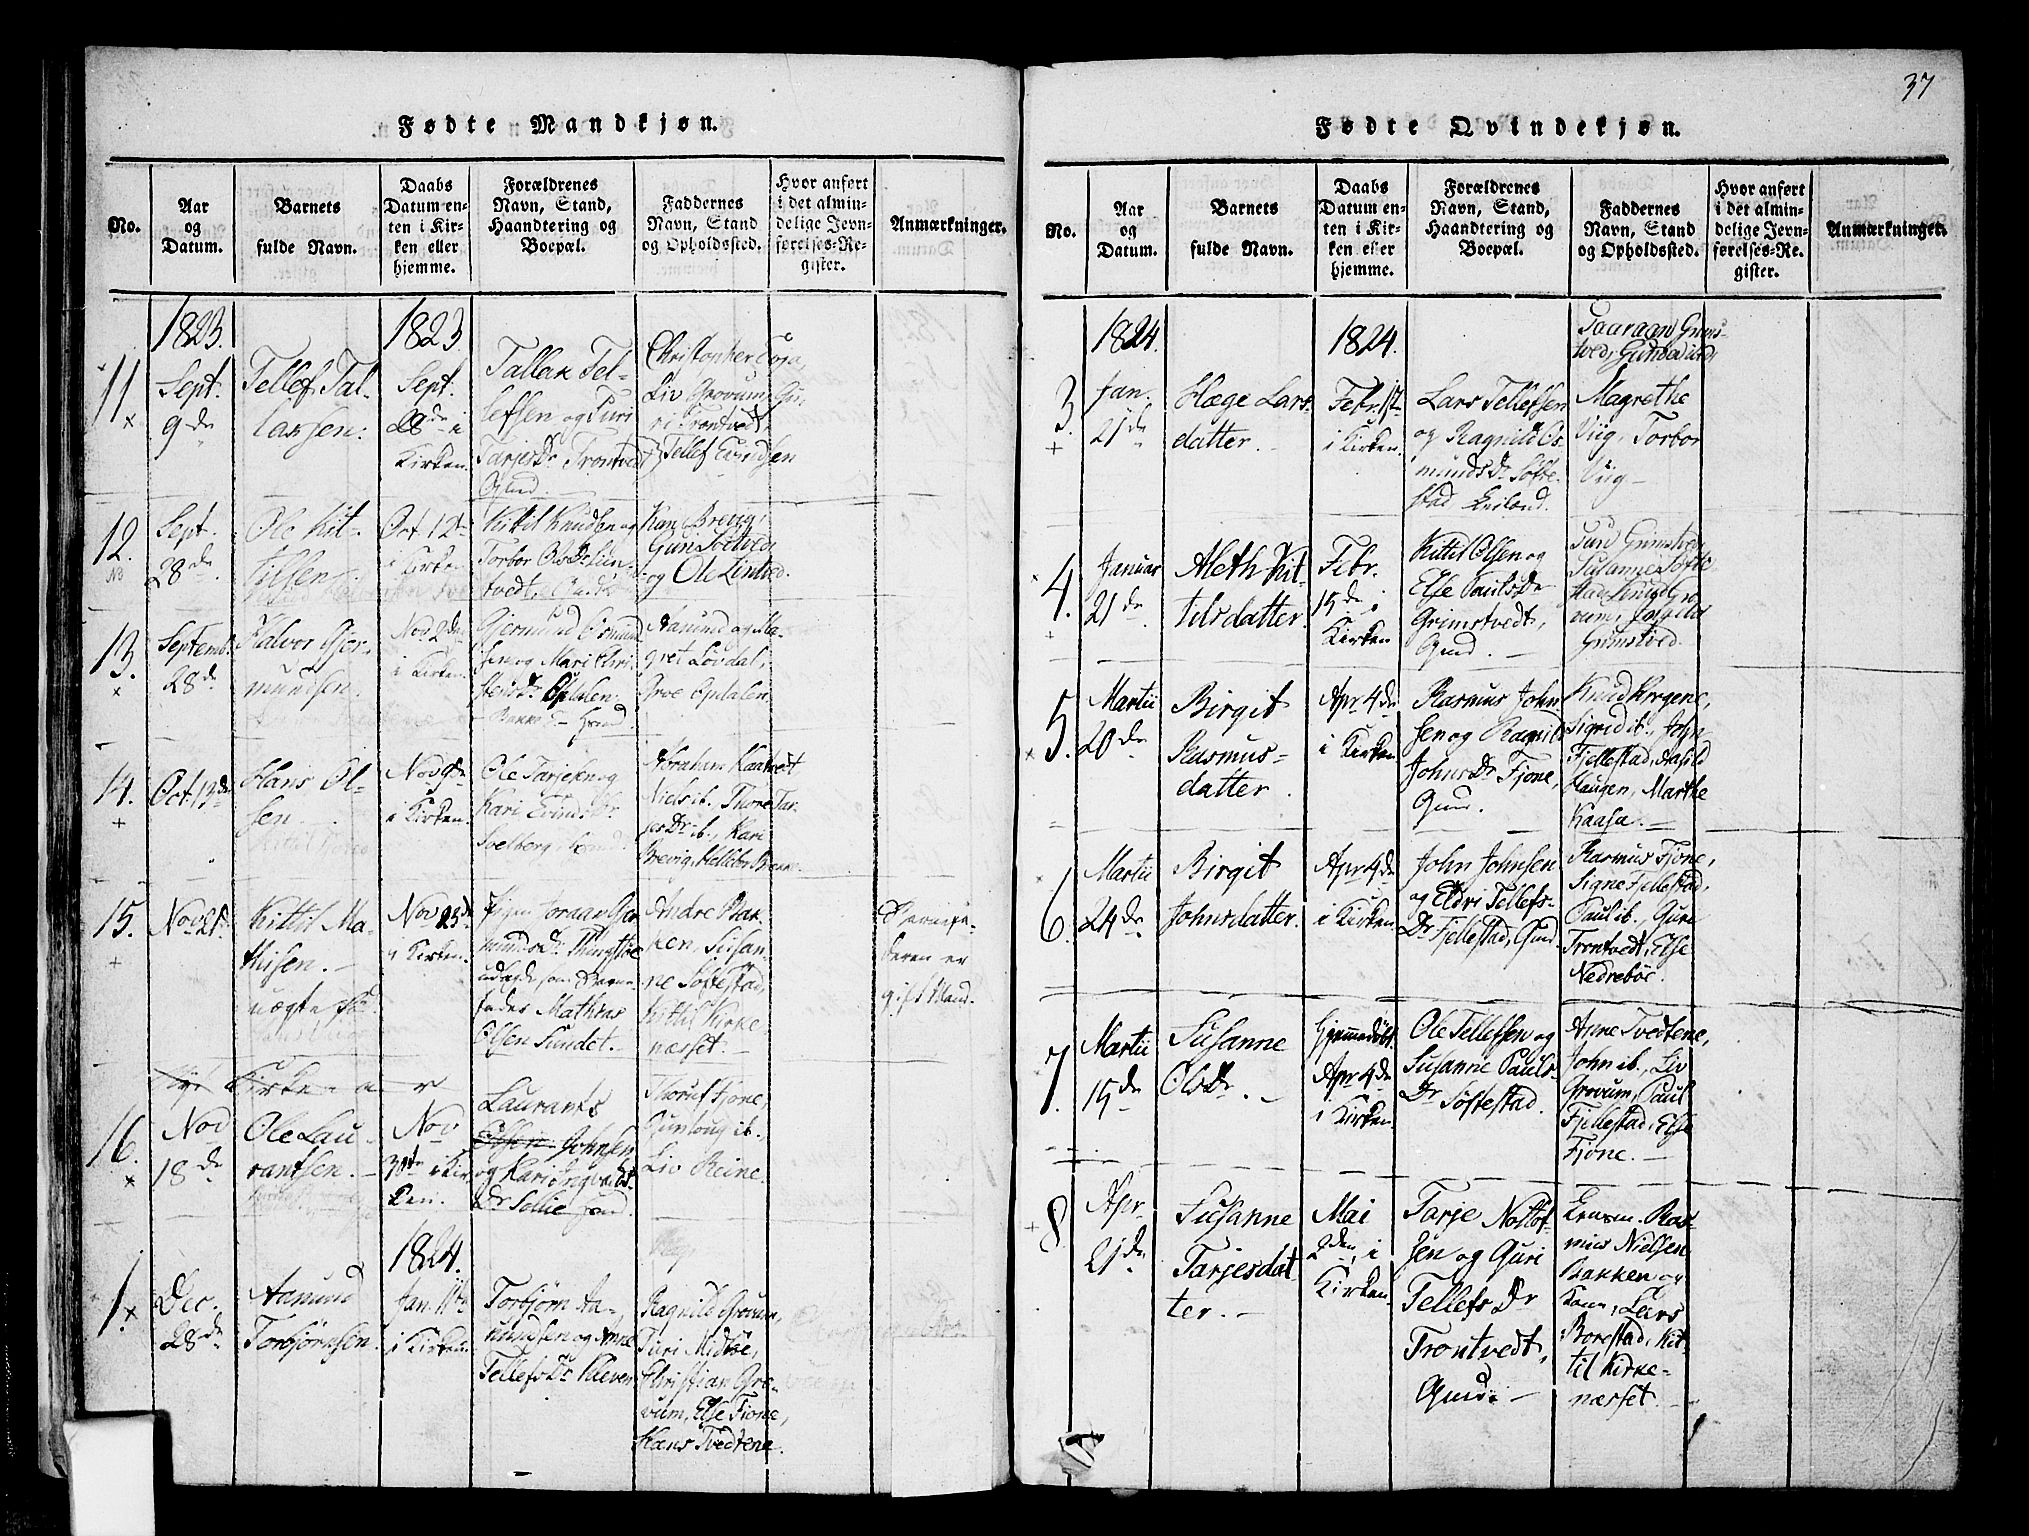 37
Fødte Mandkjøn.
No.
Aar
og
Datum.
Barnets
fulde Navn.
Daabs
Datum en-
ten i Kir-
ken eller
hjemme.
Forældrenes
Navn, Stand,
Haandtering og
Boepæl.
Faddernes
Navn, Stand
og Opholdssted.
Hvor anført
i det almin-
delige Jevn-
førelses-Re-
gister.
Anmærkninger.
1823.
1823
11
Sept.
9de
Tellef Tal-
laksen.
Sept.
28de i
Kirken.
Tallak Tel-
lefsen og Turi
Tarjes Dr Trontvedt
Christopher
Liv Grovum, Gu-
ri Trontvedt
Tellef Evindsen
12.
Sept.
28de.
Ole Kit-
tilsen.
Oct. 12te
i Kirken
Kittil Knudsen og
Torbor Ols Dr Lun-
tvedt,
Kari Brevig,
Guri Tvetved
og Ole Lintved.
13.
Septemb.
28de
Halvor Gjer-
mundsen.
Nov 2den
i Kirken.
Gjermund
sen og Mari Chri-
stens Dr Opdalen
Aanund og Ma-
gret Løvdal,
Groe Opdalen
14.
Oct. 13de
Hans Ol-
sen.
Nov 9de
i Kirken.
Ole Tarjesen og
Kari Evinds Dr
Solberg
Abraham Kaatvedt
Niels ib. Thore Tar-
jes Dr ib., Kari
Brevig,
15.
Nov 21de
Kittil Ma-
thisen. –
uægte
Nov 23de
i Kirken.
Pigen Joraan Gjer-
munds Dr
udlagde som Barne-
fader Mathias
Olsen Sundet. –
Andre Bak-
ken, Susan-
ne Søftestad,
Kittil Kirke
næsset. –
Barnefa-
deren er
gift Mand.
16.
Nov
18de
Ole Lau-
rantsen. –
Nov
30te i Kir
ken.
Laurants
Johnsen
og Kari Ingvalds
Dr Sollie
Fjone,
Gunloug ib.
Liv Reine.
1824.
1.
Dec.
28de
Aanund
Torbjørnsen.
Jan. 11te
i Kirken.
Torbjørn Aa-
nundsen og Anne
Tellefs Dr Kleven
Ragnild Grovum,
Turi Midbøe,
Christian Gro-
vum, Else Fjone,
Hans Tvedtene.
Fødte Qvindekjøn.
No.
Aar
og
Datum.
Barnets
fulde Navn.
Daabs
Datum en-
ten i Kir-
ken eller
hjemme.
Forældrenes
Navn, Stand,
Haandtering og
Boepæl.
Faddernes
Navn, Stand
og Opholdssted.
Hvor anført
i det almin-
delige Jevn-
førelses-Re-
gister.
Anmærkninger.
1824.
1824.
3.
Jan.
21de
Hæge Lars-
datter. –
Febr. 1ste
i Kirken.
Lars Tellefsen
og Ragnild Os-
munds Dr Søfte-
stad
Joaraan Grims-
tved, Gunild ibid,
Magrethe
Viig, Torbor
Viig –
4.
Januar
21de
Aleth Kit-
tilsdatter.
Febr.
15de i
Kirken
Kittil Olsen og
Else Pauls Dr
Grimstvedt,
Gmd. –
Turi Grimstved
Susanne Søfte
stad, Knud Gro
vum,
Grimstved.
5.
Martii
20de
Birgit
Rasmus-
datter.
Apr 4de
i Kirken
Rasmus John
sen og Ragnild
Johns Dr Fjone,
Gmd.
Knud Krogene,
Sigrid ib., John
Fjellestad, Aasild
Haugen, Marthe
Kaasa. –
6.
Martii
24de
Birgit
Johnsdatter.
Apr 4de
i Kirken.
John Johnsen
og Eldri Tellefs-
Dr Fjellestad, Gmd.
Rasmus Fjone,
Signe Fjellestad,
Paul ib., Guri
Trontvedt, Else
Nedrebøe.
7.
Martii
15de
Susanne
Ols Dr. –
Hjemmedøbt
Apr 4de
i Kirken.
Ole Tellefsen og
Susanne Pauls-
Dr Søftestad.
Anne Tvedtene,
John ib., Liv
Grovum, Paul
Fjellestad, Else
Fjone. –
8
Apr
21de
Susanne
Tarjesdat
ter. –
Mai
2den i
Kirken
Tarje Nottof
sen og Guri
Tellefs Dr
Trontvedt,
Gmd. –
Ras-
mus Nielsen
Bakken og
Kone, Lars
Borestad, Kit-
til Kirke-
næsset. –